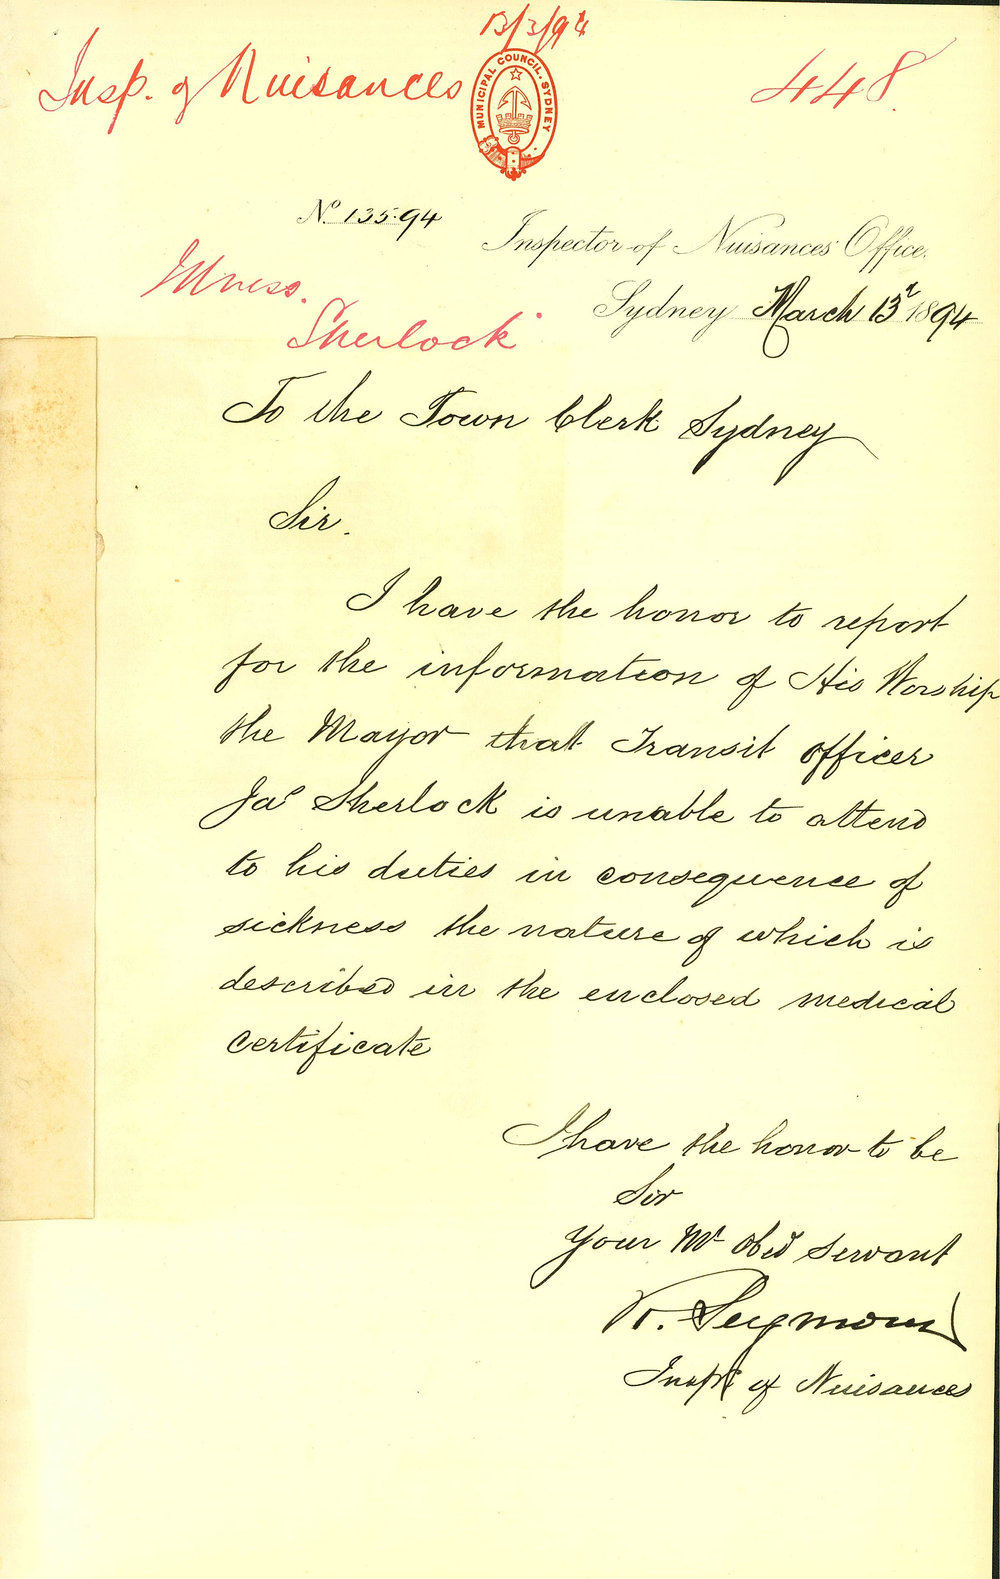 13/3/94
Insp. of Nuisances
448.
MUNICIPAL COUNCIL. SYDNEY
No. 135.94
Inspector of Nuisances Office.
Illness.
Sydney March 13th 1894
Sherlock
To the Town Clerk Sydney
Sir.
I have the honor to report
for the information of His Worship
the Mayor that Transit officer
Jas Sherlock is unable to attend
to his duties in consequence of
sickness the nature of which is
described in the enclosed medical
certificate
I have the honor to be
Sir
Your Mt Obed Servant
R. Seymour
Inspr of Nuisances